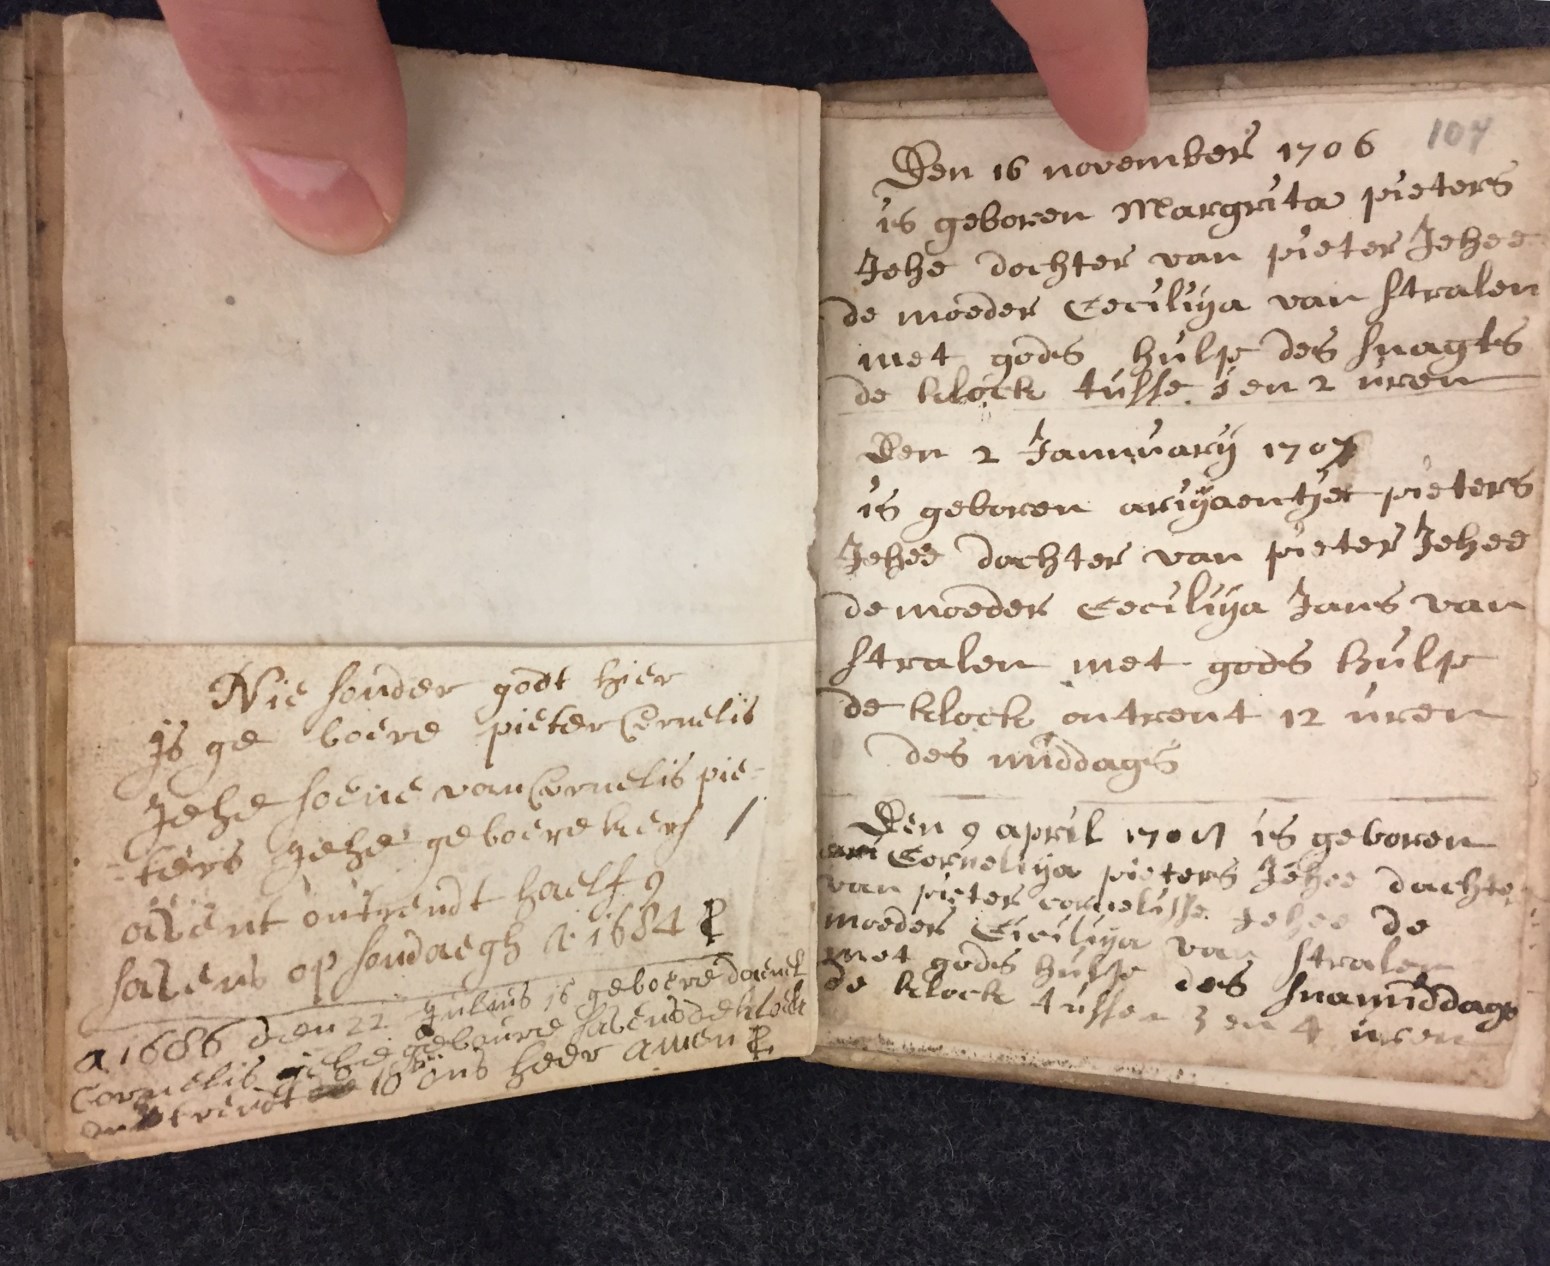 Nie sonder godt hier
is ge boere pieter Cornelis
Jehe soene van Cornelis pie-
-ters Jehe geboere kers /
avent ontrendt haelf 9
savens op sondaegh A 1684
a 1686 den 22 Julius is geboere daenel
Cornelis Jehe geboure savens de klock
ontrendt 10 ons heer amen
107
Den 16 november 1706
is geboren Margrita pieters
Jehe dochter van pieter Jehee
de moeder Ceciliya van stralen
met gods hulpe des snagts
de klock tusse en 2 uren
Den 2 Jannuary 1707
is geboren ariyaentje pieters
Jehee dochter van pieter Jehee
de moeder Ceciliya Jans van
stralen met gods hulpe
de klock ontrent 12 uren
des middags
Den 9 april is geboren
Corneliya pieters Jehee dochter
van pieter cornelisse Jehee de
moeder Ciciliya van stralen
met gods hulpe des snamiddags
de klock tussen 3 en 4 uren